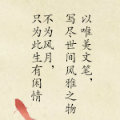 以唯美文笔，
写尽世间风雅之物
不为风月，
只为此生有闲情